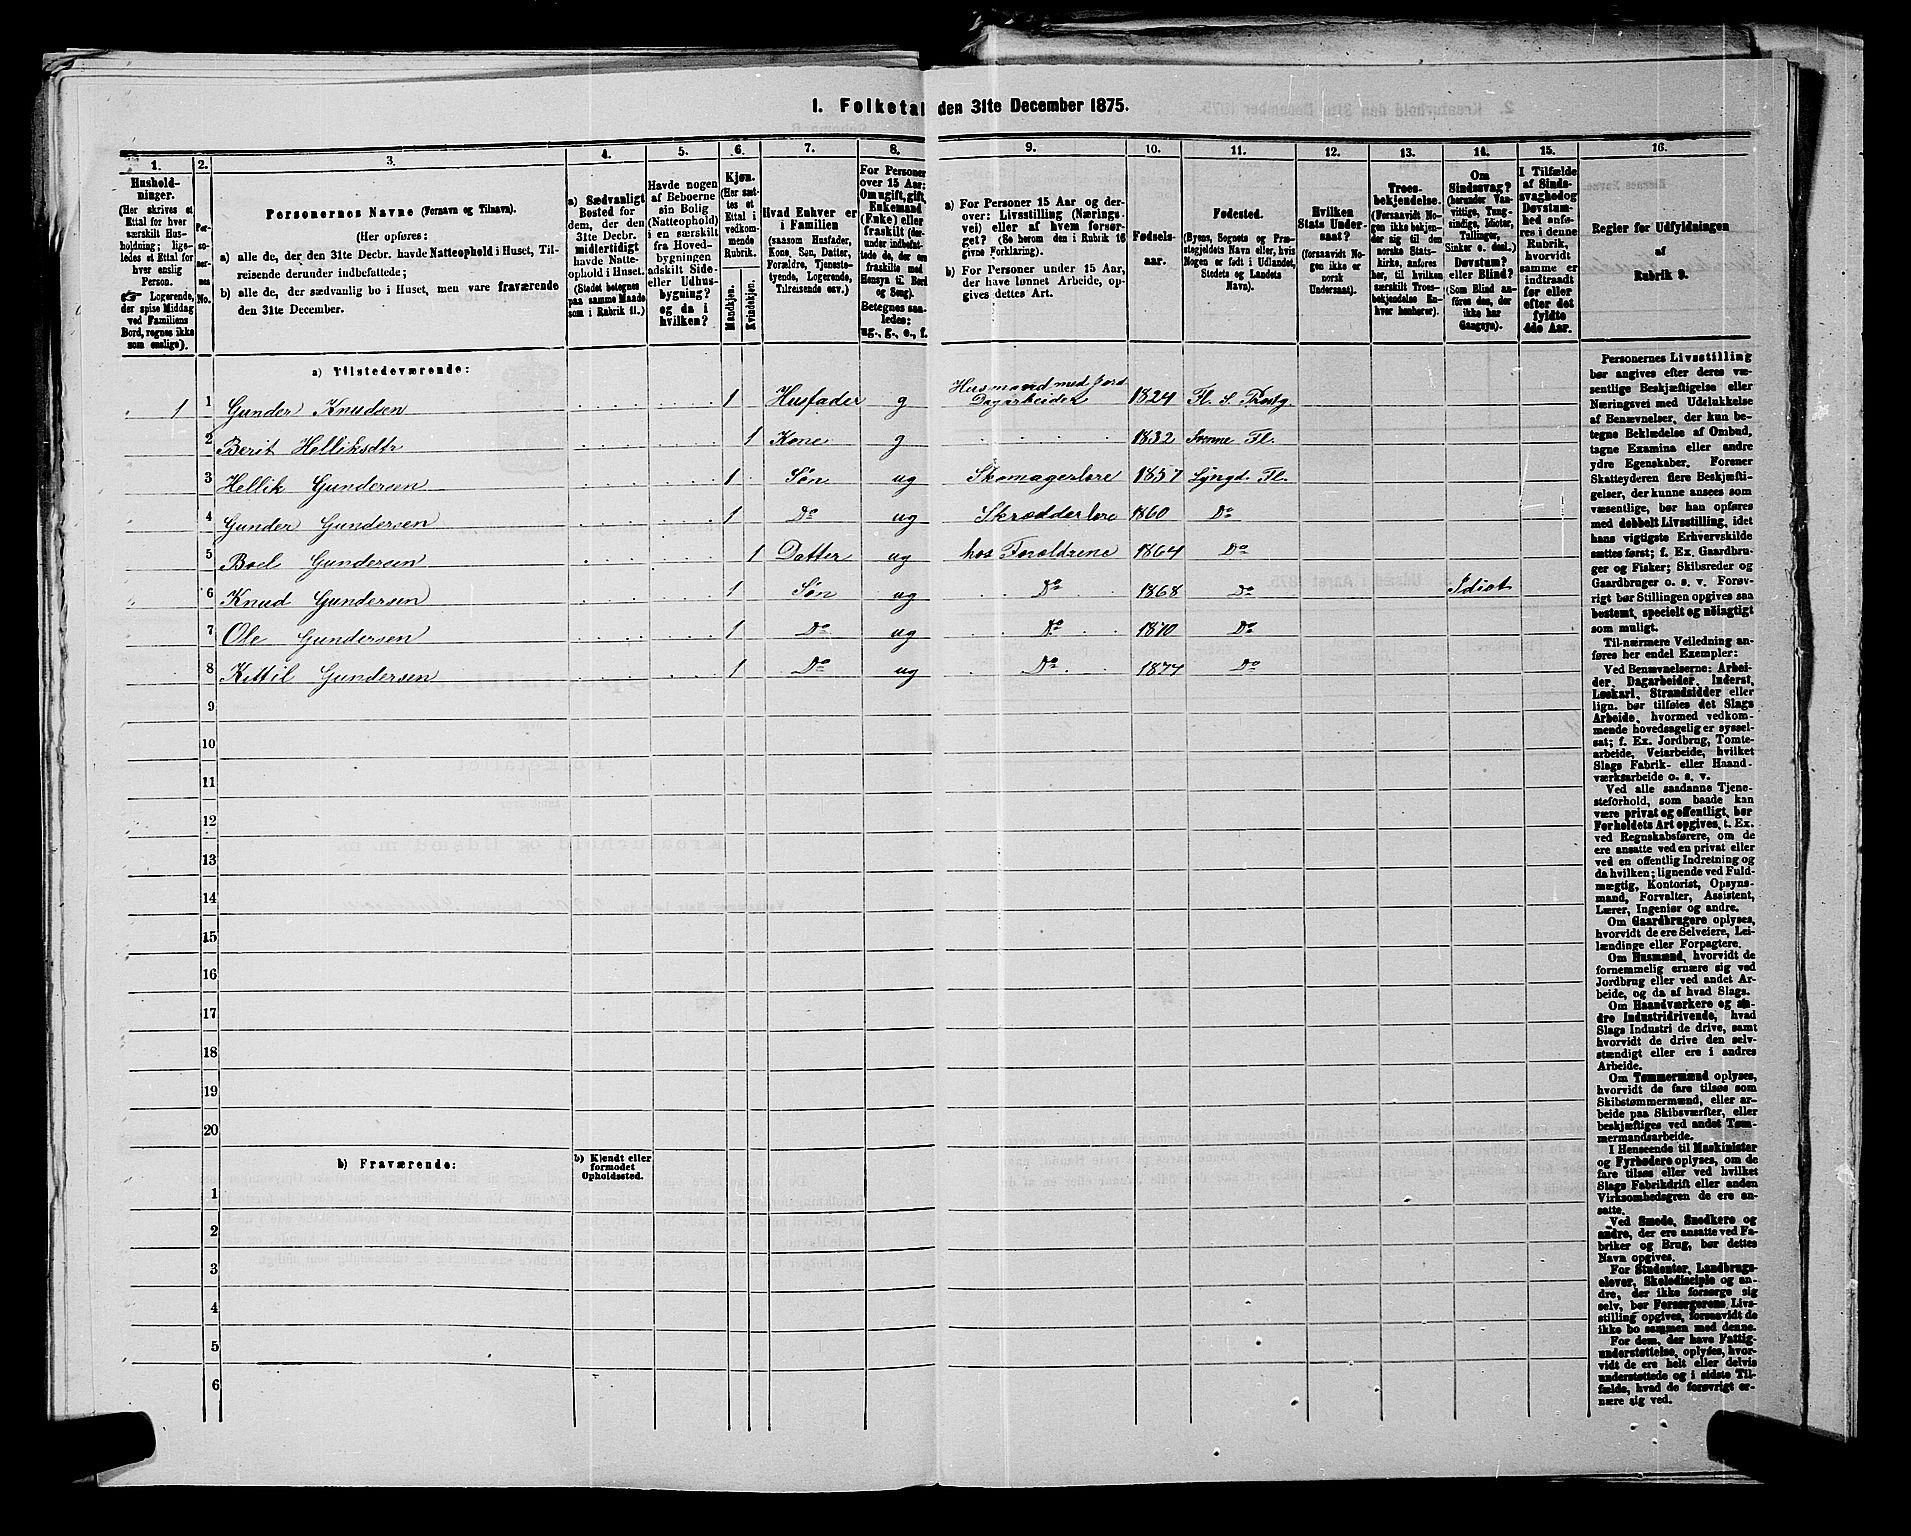 1. Folketal den 31te December 1875.
1.
2.
3.
4.
5.
6.
7.
8.
9.
10.
11.
12.
13.
14.
15.
16.
Hushold-
ninger.
(Her skrives et
Ettal for hver
særskilt Hus-
holdning; lige-
ledes et Ettal for
hver enslig
Person.
☞ Logerende,
der spise Middag
ved Familiens
Bord, regnes ikke
som enslige).
Per-
so-
ner-
nes
No.
Personernes Navne (Fornavn og Tilnavn).
(Her opføres:
a) alle de, der den 31te Decbr. havde Natteophold i Huset, Til-
reisende derunder indbefattede;
b) alle de, der sædvanlig bo i Huset, men vare fraværende
den 31te December.
a) Sædvanligt
Bosted for
dem, der den
31te Decbr.
midlertidigt
havde Natte-
ophold i Huset.
(Stedet betegnes
paa samme Maade
som i Rubrik 11.)
Havde nogen
af Beboerne
sin Bolig
(Natteophold)
i en særskilt
fra Hoved-
bygningen
adskilt Side-
eller Udhus-
bygning?
og da i
hvilken?
Kjøn.
(Her sæt-
tes et
Ettal i
vedkom-
mende
Rubrik.
Mandkjøn.
Kvindekjøn.
Hvad Enhver er
i Familien
(saasom Husfader,
Kone, Søn, Datter,
Forældre, Tjeneste-
tyende, Logerende,
Tilreisende osv.)
For Personer
over 15 Aar:
Om ugift, gift,
Enkemand
(Enke) eller
fraskilt (der-
under indbefat-
tede de, der ere
fraskilte med
Hensyn til Bord
og Seng).
Betegnes saa-
ledes:
ug., g., e., f.
a) For Personer 15 Aar og der-
over: Livsstilling (Nærings-
vei) eller af hvem forsør-
get? (Se herom den i Rubrik 16
givne Forklaring).
b) For Personer under 15 Aar,
der have lønnet Arbeide, op-
gives dettes Art.
Fødsels-
aar.
Fødested.
(Byens, Sognets og Præ-
stegjeldets Navn eller, hvis
Nogen er født i Udlandet,
Stedets og Landets
Navn).
Hvilken
Stats Under-
saat?
(forsaavidt No-
gen ikke er
norsk
Undersaat).
Troes-
bekjendelse.
(Forsaavidt No-
gen ikke bekjen-
der sig til den
norske Stats-
kirke, anføres
her, til hvilken
særskilt Troes-
bekjendelse En-
hver henhører).
Om
Sindssvag?
(herunder Van-
vittige, Tung-
sindige, Idioter,
Tullinger,
Sinker o. desl.)
Døvstum?
eller Blind?
(Som Blind an-
føres den, der
ikke har
Gangsyn).
I Tilfælde
af Sinds-
svaghed og
Døvstum-
hed anfø-
res i denne
Rubrik,
hvorvidt
samme er
indtraadt
før eller
efter det
fyldte
4de Aar.
Regler for Udfyldningen
af
Rubrik 9.
a) Tilstedeværende:
1 1 Gunder Knudsen 1 Husfader g Husmand med Jord Dagarbeider 1824 Fl. S.
2 Berit Helliksdtr 1 Kone g 1832 Svenne Fl.
3 Hellik Gundersen 1 Søn ug Skomagerlære 1857 Lyngd. Fl.
4 Gunder Gundersen 1 Do ug Skrædderlære 1860 Do
5 Boel Gundersen 1 Datter ug hos Forældrene 1864 Do
6 Knud Gundersen 1 Søn ug Do 1868 Do Idiot
7 Ole Gundersen 1 Do ug Do 1870 Do
8 Kittil Gundersen 1 Do ug Do 1874 Do
9
10
11
12
13
14
15
16
17
18
19
20
b) Fraværende:
b) Kjendt eller
formodet
Opholdssted.
1
2
3
4
5
6
Personernes Livsstilling
bør angives efter deres væ-
sentlige Beskjæftigelse eller
Næringsvei med Udelukkelse
af Benævnelser, der kun be-
tegne Beklædelse af Ombud,
tagne Examina eller andre
ydre Egenskaber. Forener
Skatteyderen flere Beskjæfti-
gelser, der kunne ansees som
væsentlige, bør han opføres
med dobbelt Livsstilling, idet
hans vigtigste Erhvervskilde
sættes først; f. Ex. Gaardbru-
ger og Fisker; Skibsreder og
Gaardbruger o. s. v. Forøv-
rigt bør Stillingen opgives saa
bestemt, specielt og nøiagtigt
som muligt.
Til nærmere Veiledning an-
føres her endel Exempler:
Ved Benævnelserne: Arbei-
der, Dagarbeider, Inderst,
Løskarl, Strandsidder eller
lign. bør tilføies det Slags
Arbeide, hvormed vedkom-
mende hovedsagelig er syssel-
sat; f. Ex. Jordbrug, Tomte-
arbeide, Veiarbeide, hvilket
Slags Fabrik- eller Haand-
værksarbeide o. s. v.
Ved alle saadanne Tjene-
steforhold, som baade kan
være privat og offentligt, bør
Forholdets Art opgives, t. Ex.
ved Regnskabsførere, om de
ere ansatte ved en privat eller
ved en offentlig Indretning og
da hvilken; lignende ved Fuld-
mægtig, Kontorist, Opsyns-
mand, Forvalter, Assistent,
Lærer, Ingeniør og andre.
Om Gaardbrugere oplyses,
hvorvidt de ere Selveiere, Lei-
lændinge eller Forpagtere.
Om Husmænd, hvorvidt de
fornemmelig ernære sig ved
Jordbrug eller ved andet Ar-
beide, og da af hvad Slags.
Om Haandværkere og an-
dre Industridrivende, hvad
Slags Industri de drive, samt
hvorvidt de drive den selv-
stændigt eller ere i andres
Arbeide.
Om Tømmermænd oplyses,
hvorvidt de fare tilsøs som
Skibstømmermænd, eller ar-
beide paa Skibsværfter, eller
beskjæftiges ved andet Tøm-
mermandsarbeide.
I Henseende til Maskinister
og Fyrbødere oplyses, om de
fare tilsøs eller ved hvilket
Slags Fabrikdrift eller anden
Virksomhedsgren de ere an-
satte.
Ved Smede, Snedkere og
andre, der ere ansatte ved Fa-
briker og Brug, bør dettes
Navn opgives.
For Studenter, Landbrugs-
elever, Skoledisciple og an-
dre, der ikke forsørge sig
selv, bør Forsørgerens Livs-
stilling opgives, forsaavidt de
ikke bo sammen med denne.
For dem, der have Fattig-
understøttelse, oplyses, hvor-
vidt de ere helt eller delvis
understøttede og i sidste Til-
fælde, hvad de forøvrigt er-
nære sig ved.